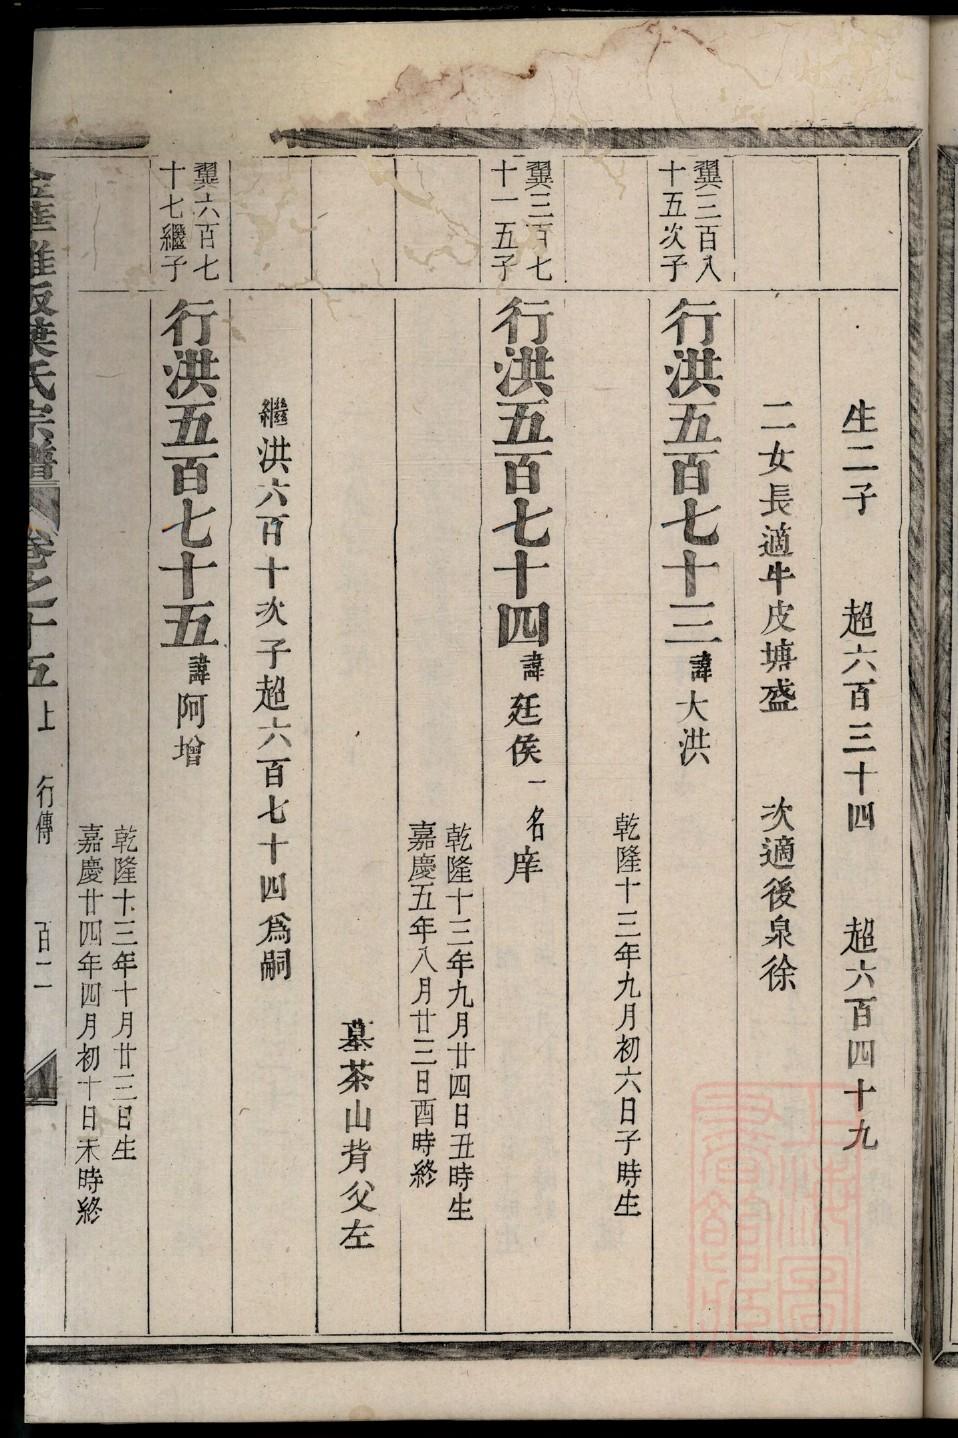 生二子　超六百三十四　超六百四十九
二女長適牛皮塘盛　次適後泉徐
翼三百八
十五次子
行洪五百七十三 諱大洪
乾隆十三年九月初六日子時生
翼三百七
十一五子
行洪五百七十四 諱廷侯 一名庠
乾隆十三年九月廿四日丑時生
嘉慶五年八月廿三日酉時終
墓茶山背父左
繼洪六百十次子超六百七十四爲嗣
翼六百七
十七繼子
行洪五百七十五 諱阿增
乾隆十三年十月廿三日生
嘉慶廿四年四月初十日未時終
葉氏宗譜 卷之十五上 行傳 百二